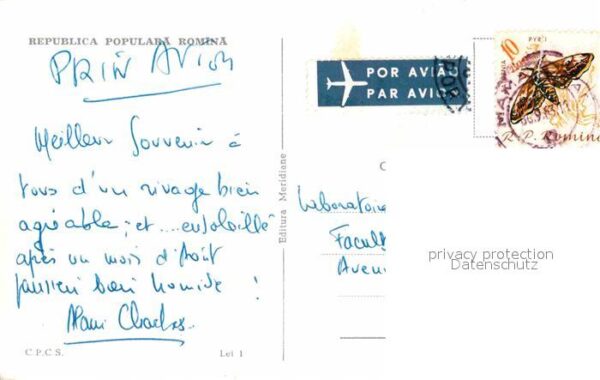 REPUBLICA POPULARĂ ROMÎNĂ
PRIN AVION
Meilleur Souvenir à
tous d'un rivage bien
agréable; et .... ensoleillé
après un mois d'Août
parisien bien humide !
C.P.C.S.
Lei 1
Editura Meridiane
POR AVIÃO
PAR AVION
10
R.P. Romina
Laboratoire
Facult
Aveni
privacy protection
Datenschutz